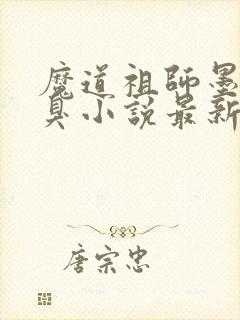 魔道祖師墨
臭小說最新
唐宗忠